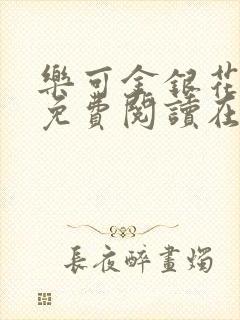 樂可金銀花
免費閱讀在
長夜醉畫燭